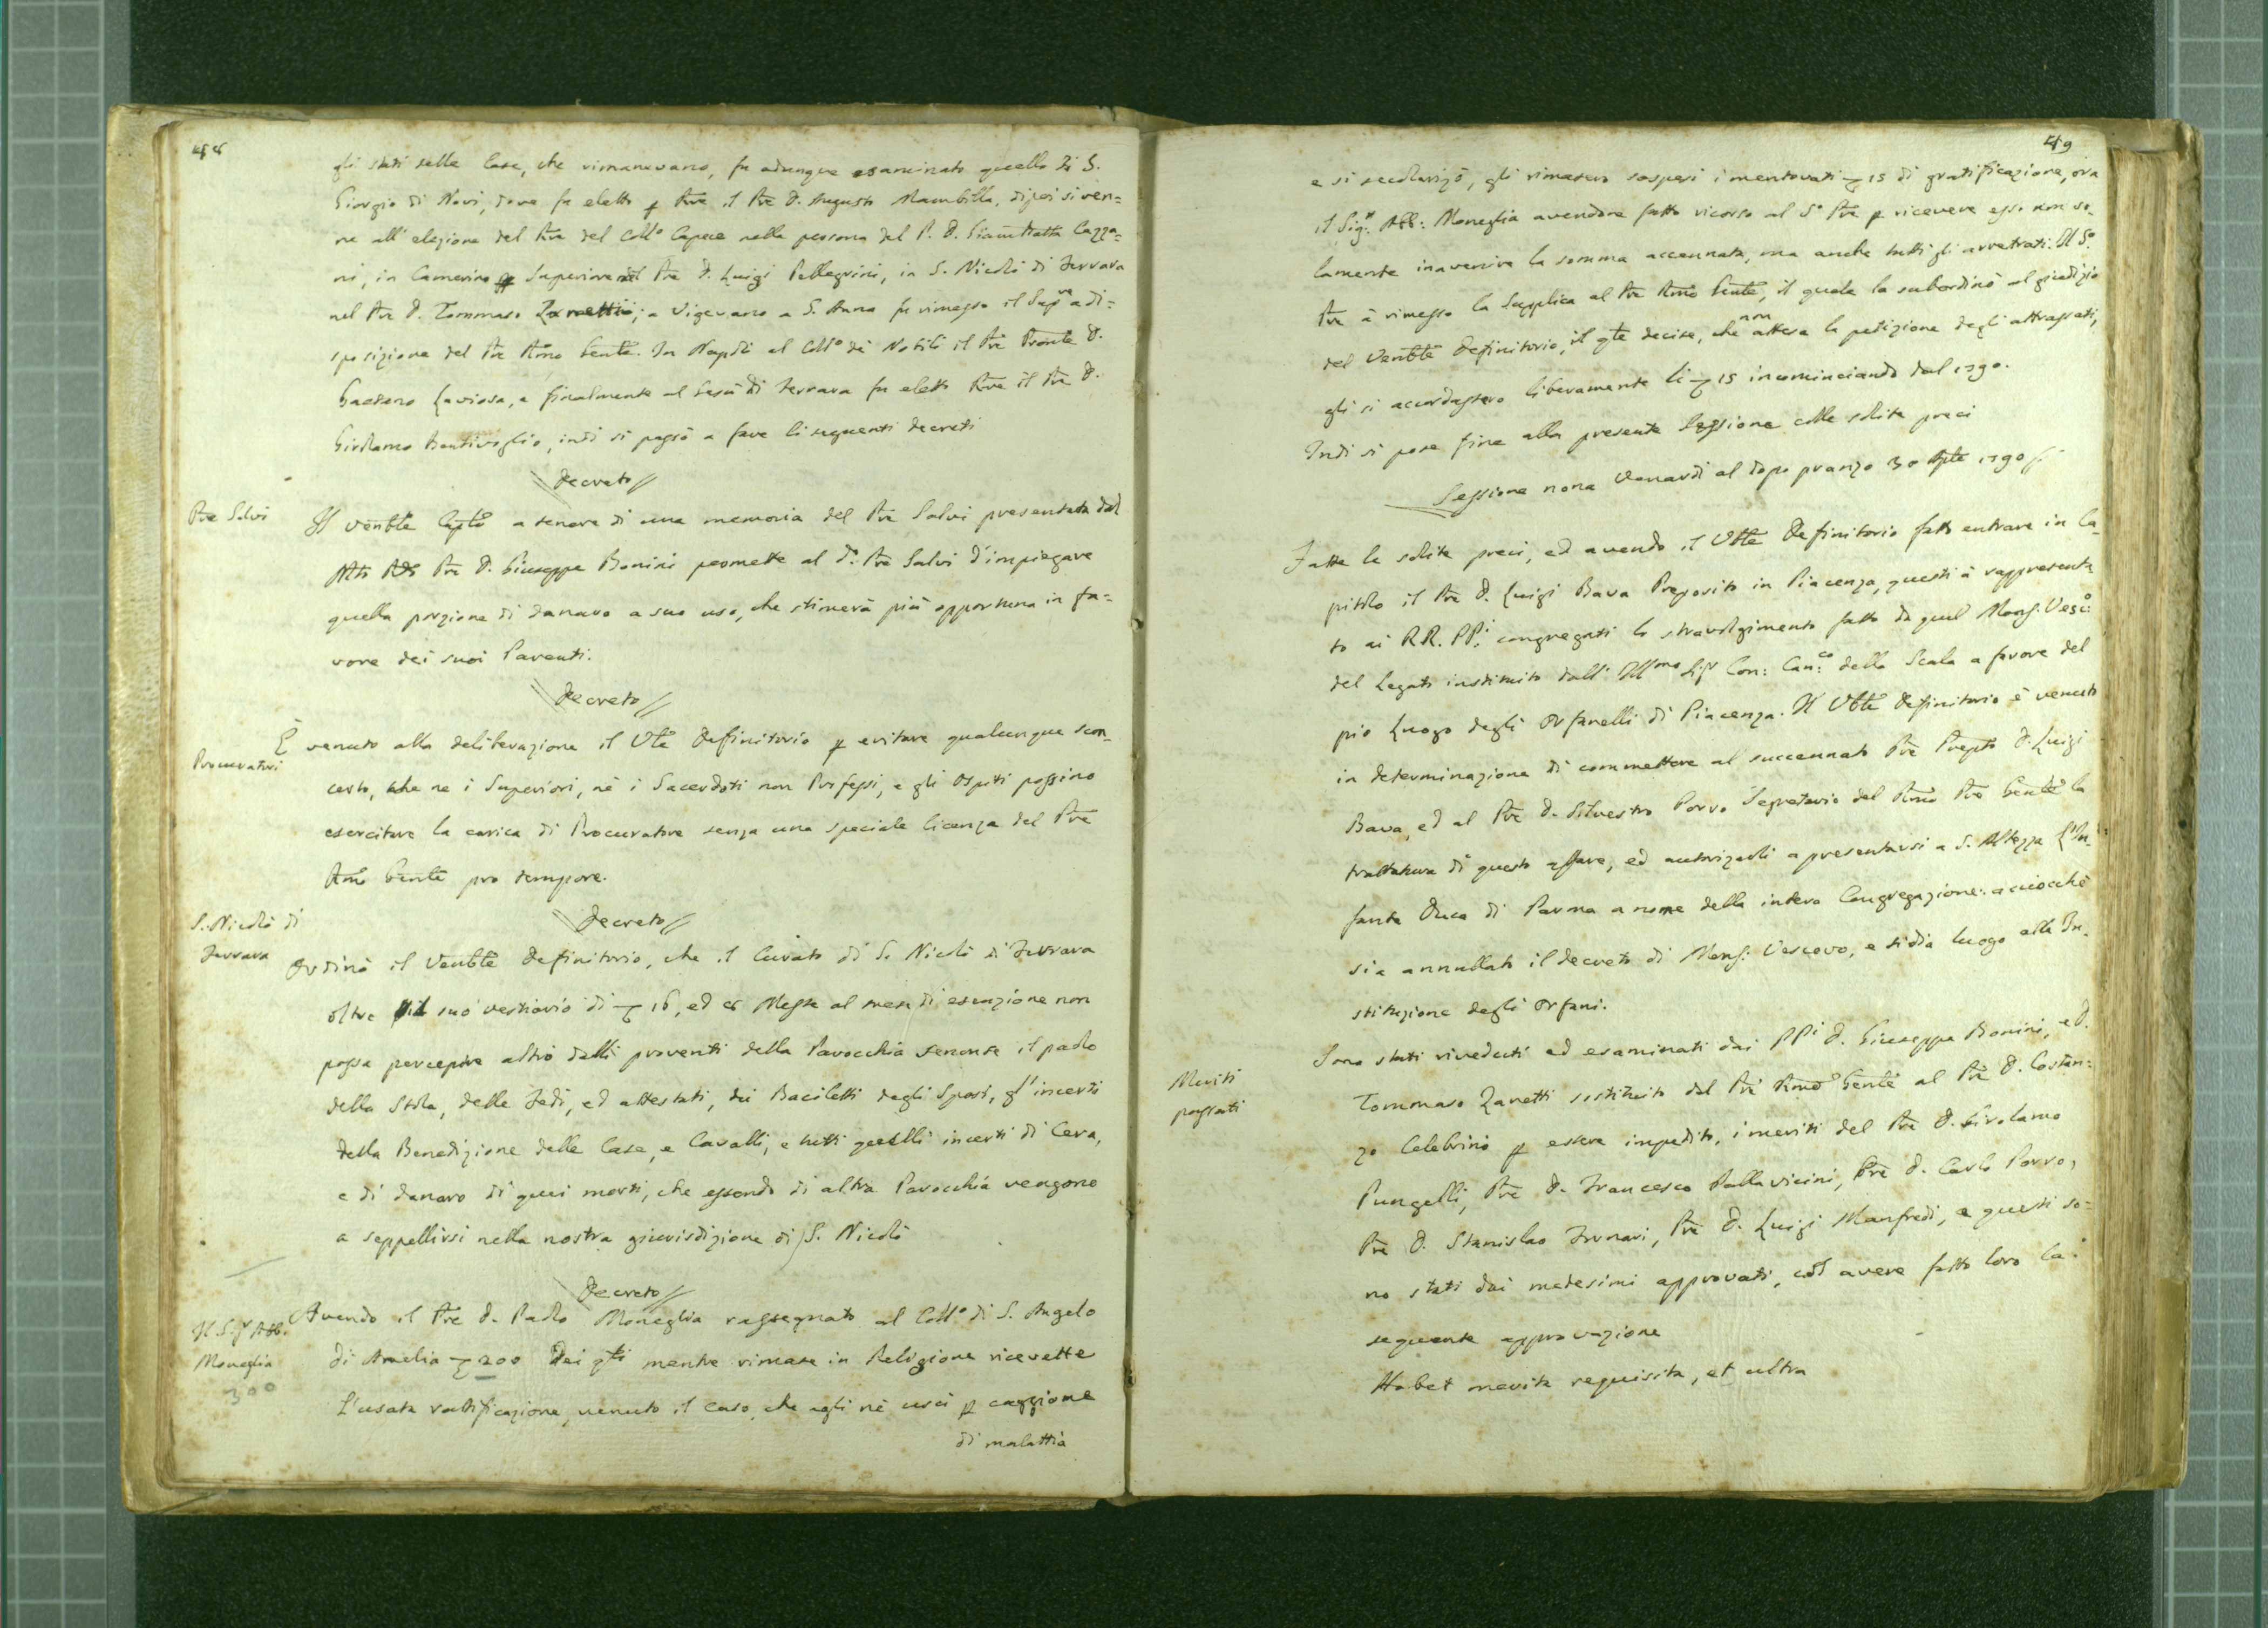 48
gli stati delle Case, che rimanevano, fu adunque esaminato quello di S.
Giorgio di Novi, dove fu eletto p Pre il Pre D. Augusto Mambilla, dipoi si ven=
ne all'elezione del Pre del Collo Capece nella persona del P. D. Giambatta Cazza=
ni, in Camerino p Superiore il Pre D. Luigi Pellegrini, in S. Nicolò di Ferrara
nel Pre D. Tommaso Zanetti; a Vigevano a S. Anna fu rimesso il Supre a di=
sposizione del Pre Rmo Genle. In Napoli al Collo dei Nobili il Pre Pronle D.
Gaetano Laviosa, e finalmente al Gesù di Ferrara fu eletto Pre il Pre D.
Girolamo Bentivoglio, indi si passò a fare li seguenti decreti
Decreto
Pre Salvi
Il Venble Caplo a tenore di una memoria del Pre Salvi presentata dal
Mto Rdo Pre D. Giuseppe Bonini permette al do Pre Salvi d'impiegare
quella porzione di danaro a suo uso, che stimerà più opportuna in fa=
vore dei suoi Parenti.
Decreto
Procuratori
È venuto alla deliberazione il Vle Definitorio p evitare qualunque scon-
certo, che ne i Superiori, nè i Sacerdoti non Professi, e gli Ospiti possino
esercitare la carica di Procuratore senza una speciale licenza del Pre
Rmo Genle pro tempore.
Decreto
S. Nicolò di
Ferrara
Ordinò il Venble Definitorio, che il Curato di S. Nicolò di Ferrara
oltre il suo vestiario di 16, ed 8 Messe al mese di esenzione non
possa percepire altro dalli proventi della Parocchia senonse il paolo
della Stola, delle Fedi, ed attestati, dei Baciletti degli Sposi, gl'incerti
della Benedizione delle Case, e Cavalli, e tutti quelli incerti di Cera,
e di danaro di quei morti, che essendo di altra Parocchia vengono
a seppellirsi nella nostra giurisdizione di S. Nicolò
Decreto
Il Sigr Abb.
Moneglia
300
Avendo il Pre D. Paolo Moneglia rassegnato al Collo di S. Angelo
di Amelia 200 Dei qli mentre rimase in Religione ricevette
l'usata ratificazione, venuto il caso, che egli nè uscì p caggione
di malattia
49
e si secolarizò, gli rimasero sospesi i mentovati 15 di gratificazione, ora
il Sigr: Abb: Moneglia avendone fatto ricorso al So Pre p ricevere esso non so-
lamente inavenire la somma accennata, ma anche tutti gli arretrati. Il So
Pre à rimesso la Supplica al Pre Rmo Genle, il quale la subordinò al giudizio
del Venble Definitorio, il qle decise, che non attesa la petizione degli attrassati,
gli si accordassero liberamente li 15 incominciando dal 1790.
Indi si pose fine alla presente Sessione colle solite preci
Sessione nona Venardì al dopo pranzo 30 Aple 1790
Fatte le solite preci, ed avendo il Vble Definitorio fatto entrare in Ca-
pitolo il Pre D. Luigi Bava Preposito in Piacenza, questi à rappresenta
to ai RR. PP.i congregati lo stravolgimento fatto da quel Mons: Vesco
del Legato instituito dall' Illmo Sigr Con: Canco della Scala a favore del
pio Luogo degli Orfanelli di Piacenza. Il Vble Definitorio è venuto
in determinazione di commettere al succennato Pre Prepto D. Luigi
Bava, ed al Pre D. Silvestro Porro Segretario del Rmo Pre Genle la
trattativa di questo affare, ed autorizarli a presentarsi a S. Altezza l'In-
fante Duca di Parma a nome della intera Congregazione: acciocchè
sia annullato il decreto di Mons: Vescovo, e si dia luogo alla In-
stituzione degli Orfani.
Meriti
passati
Sono stati riveduti ed esaminati dai PPi D. Giuseppe Bonini, e D.
Tommaso Zanetti sostituito dal Pre Rmo Genle al Pre D. Costan=
zo Celebrini p essere impedito, i meriti del Pre D. Girolamo
Pungelli, Pre D. Francesco Pallavicini, Pre D. Carlo Porro,
Pre D. Stanislao Frunari, Pre D. Luigi Manfredi, e questi so=
no stati dai medesimi approvati, col avere fatto loro la
seguente approvazione
Habet merita requisita, et ultra